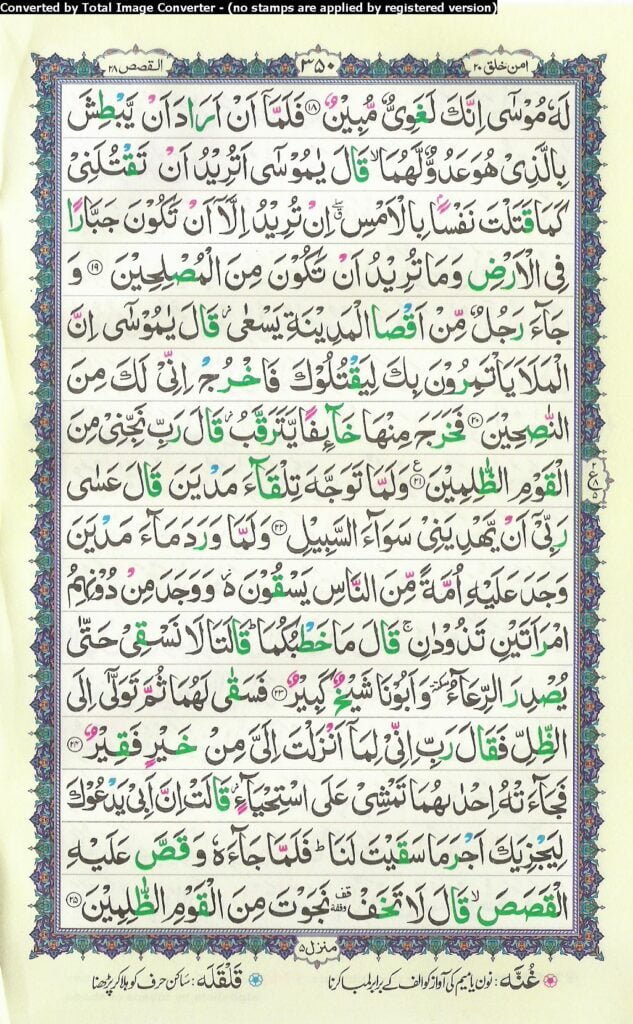 Converted by Total Image Converter - (no stamps are applied by registered version)
القصص ۲۸
۳۵۰
امن خلق ۲۰
لَهٗ مُوْسٰۤى اِنَّكَ لَغَوِىٌّ مُّبِيْنٌ ۱۸ فَلَمَّاۤ اَنْ اَرَادَ اَنْ يَّبْطِشَ
بِالَّذِىْ هُوَ عَدُوٌّ لَّهُمَا ۙ قَالَ يٰمُوْسٰۤى اَتُرِيْدُ اَنْ تَقْتُلَنِىْ
كَمَا قَتَلْتَ نَفْسًۢا بِالْاَمْسِ ۖ ق اِنْ تُرِيْدُ اِلَّاۤ اَنْ تَكُوْنَ جَبَّارًا
فِى الْاَرْضِ وَمَا تُرِيْدُ اَنْ تَكُوْنَ مِنَ الْمُصْلِحِيْنَ ۱۹ وَ
جَآءَ رَجُلٌ مِّنْ اَقْصَا الْمَدِيْنَةِ يَسْعٰى ز قَالَ يٰمُوْسٰۤى اِنَّ
الْمَلَاَ يَاْتَمِرُوْنَ بِكَ لِيَقْتُلُوْكَ فَاخْرُجْ اِنِّىْ لَكَ مِنَ
النّٰصِحِيْنَ ۲۰ فَخَرَجَ مِنْهَا خَآئِفًا يَّتَرَقَّبُ ز قَالَ رَبِّ نَجِّنِىْ مِنَ
الْقَوْمِ الظّٰلِمِيْنَ ۲۱ ع وَلَمَّا تَوَجَّهَ تِلْقَآءَ مَدْيَنَ قَالَ عَسٰى
رَبِّىْۤ اَنْ يَّهْدِيَنِىْ سَوَآءَ السَّبِيْلِ ۲۲ وَلَمَّا وَرَدَ مَآءَ مَدْيَنَ
وَجَدَ عَلَيْهِ اُمَّةً مِّنَ النَّاسِ يَسْقُوْنَ ەۙ وَوَجَدَ مِنْ دُوْنِهِمُ
امْرَاَتَيْنِ تَذُوْدٰنِ ۚ قَالَ مَا خَطْبُكُمَا ؕ قَالَتَا لَا نَسْقِىْ حَتّٰى
يُصْدِرَ الرِّعَآءُ سكتة وَاَبُوْنَا شَيْخٌ كَبِيْرٌ ۲۳ فَسَقٰى لَهُمَا ثُمَّ تَوَلّٰۤى اِلَى
الظِّلِّ فَقَالَ رَبِّ اِنِّىْ لِمَاۤ اَنْزَلْتَ اِلَىَّ مِنْ خَيْرٍ فَقِيْرٌ ۲۴
فَجَآءَتْهُ اِحْدٰٮهُمَا تَمْشِىْ عَلَى اسْتِحْيَآءٍ ز قَالَتْ اِنَّ اَبِىْ يَدْعُوْكَ
لِيَجْزِيَكَ اَجْرَ مَا سَقَيْتَ لَنَا ؕ فَلَمَّا جَآءَهٗ وَقَصَّ عَلَيْهِ
الْقَصَصَ ۙ قَالَ لَا تَخَفْ قف وقفة نَجَوْتَ مِنَ الْقَوْمِ الظّٰلِمِيْنَ ۲۵
منزل ۵
غُنَّه: نون یا میم کی آواز کو الف کے برابر لمبا کرنا
قَلْقَلَه: ساکن حرف کو ہلا کر پڑھنا